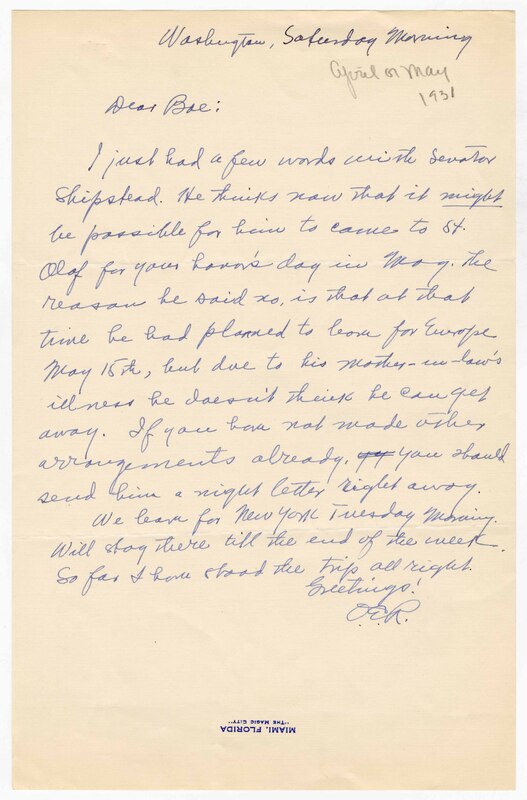 Washington, Saturday Morning
April or May
1931
Dear Boe:
I just had a few words with Senator
Shipstead. He thinks now that it might
be possible for him to come to St.
Olaf for your honor's day in May. The
reason he said no, is that at that
time he had planned to leave for Europe
May 15th, but due to his mother-in-law's
illness he doesn't think he can get
away. If you have not made other
arrangements already, you should
send him a night letter right away.
We leave for New York Tuesday Morning.
Will stay there till the end of the week.
So far I have stood the trip all right.
Greetings!
O.E.R.
MIAMI, FLORIDA
"THE MAGIC CITY"